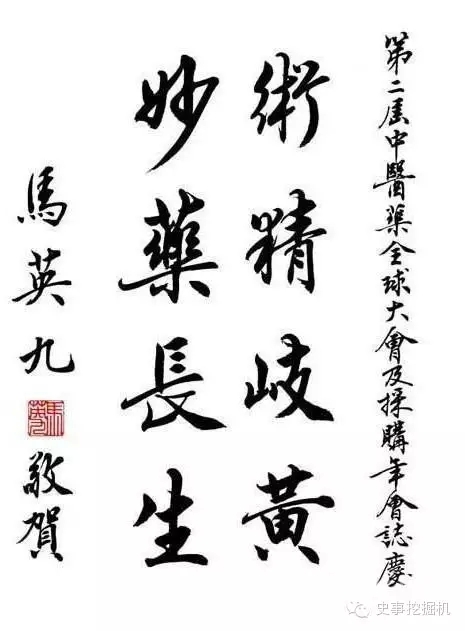 第二届中醫藥全球大會及採購年會誌慶
術精岐黃
妙藥長生
馬英九
馬英九
敬賀
史事挖掘机